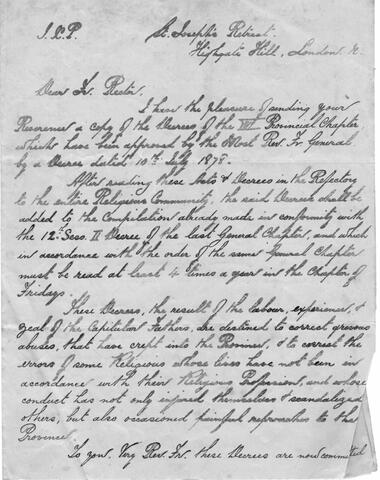 J. X. P. St. Joseph's Retreat.
Highgate Hill, London N.
Dear Fr. Rector,
I have the pleasure of sending your
Reverence a copy of the Decrees of the Provincial Chapter
which have been approved by the Most Rev. Fr. General
by a Decree dated 10th July 1878.
After reading these Acts & Decrees in the Refectory
to the entire Religious Community, the said Decrees shall be
added to the Compilation already made in conformity with
the 12th Sess. II Decree of the last General Chapter, and which
in accordance with the order of the same General Chapter
must be read at least 4 times a year in the Chapter of
Fridays.
These Decrees, the result of the labour, experience, &
zeal of the Capitular Fathers, are destined to correct grievous
abuses, that have crept into the Province, & to correct the
errors of some Religious whose lives have not been in
accordance with their Religious Profession, and whose
conduct has not only injured themselves & scandalized
others, but also occasioned painful reproaches to the
Province.
To you, Very Rev. Fr. these Decrees are now committed